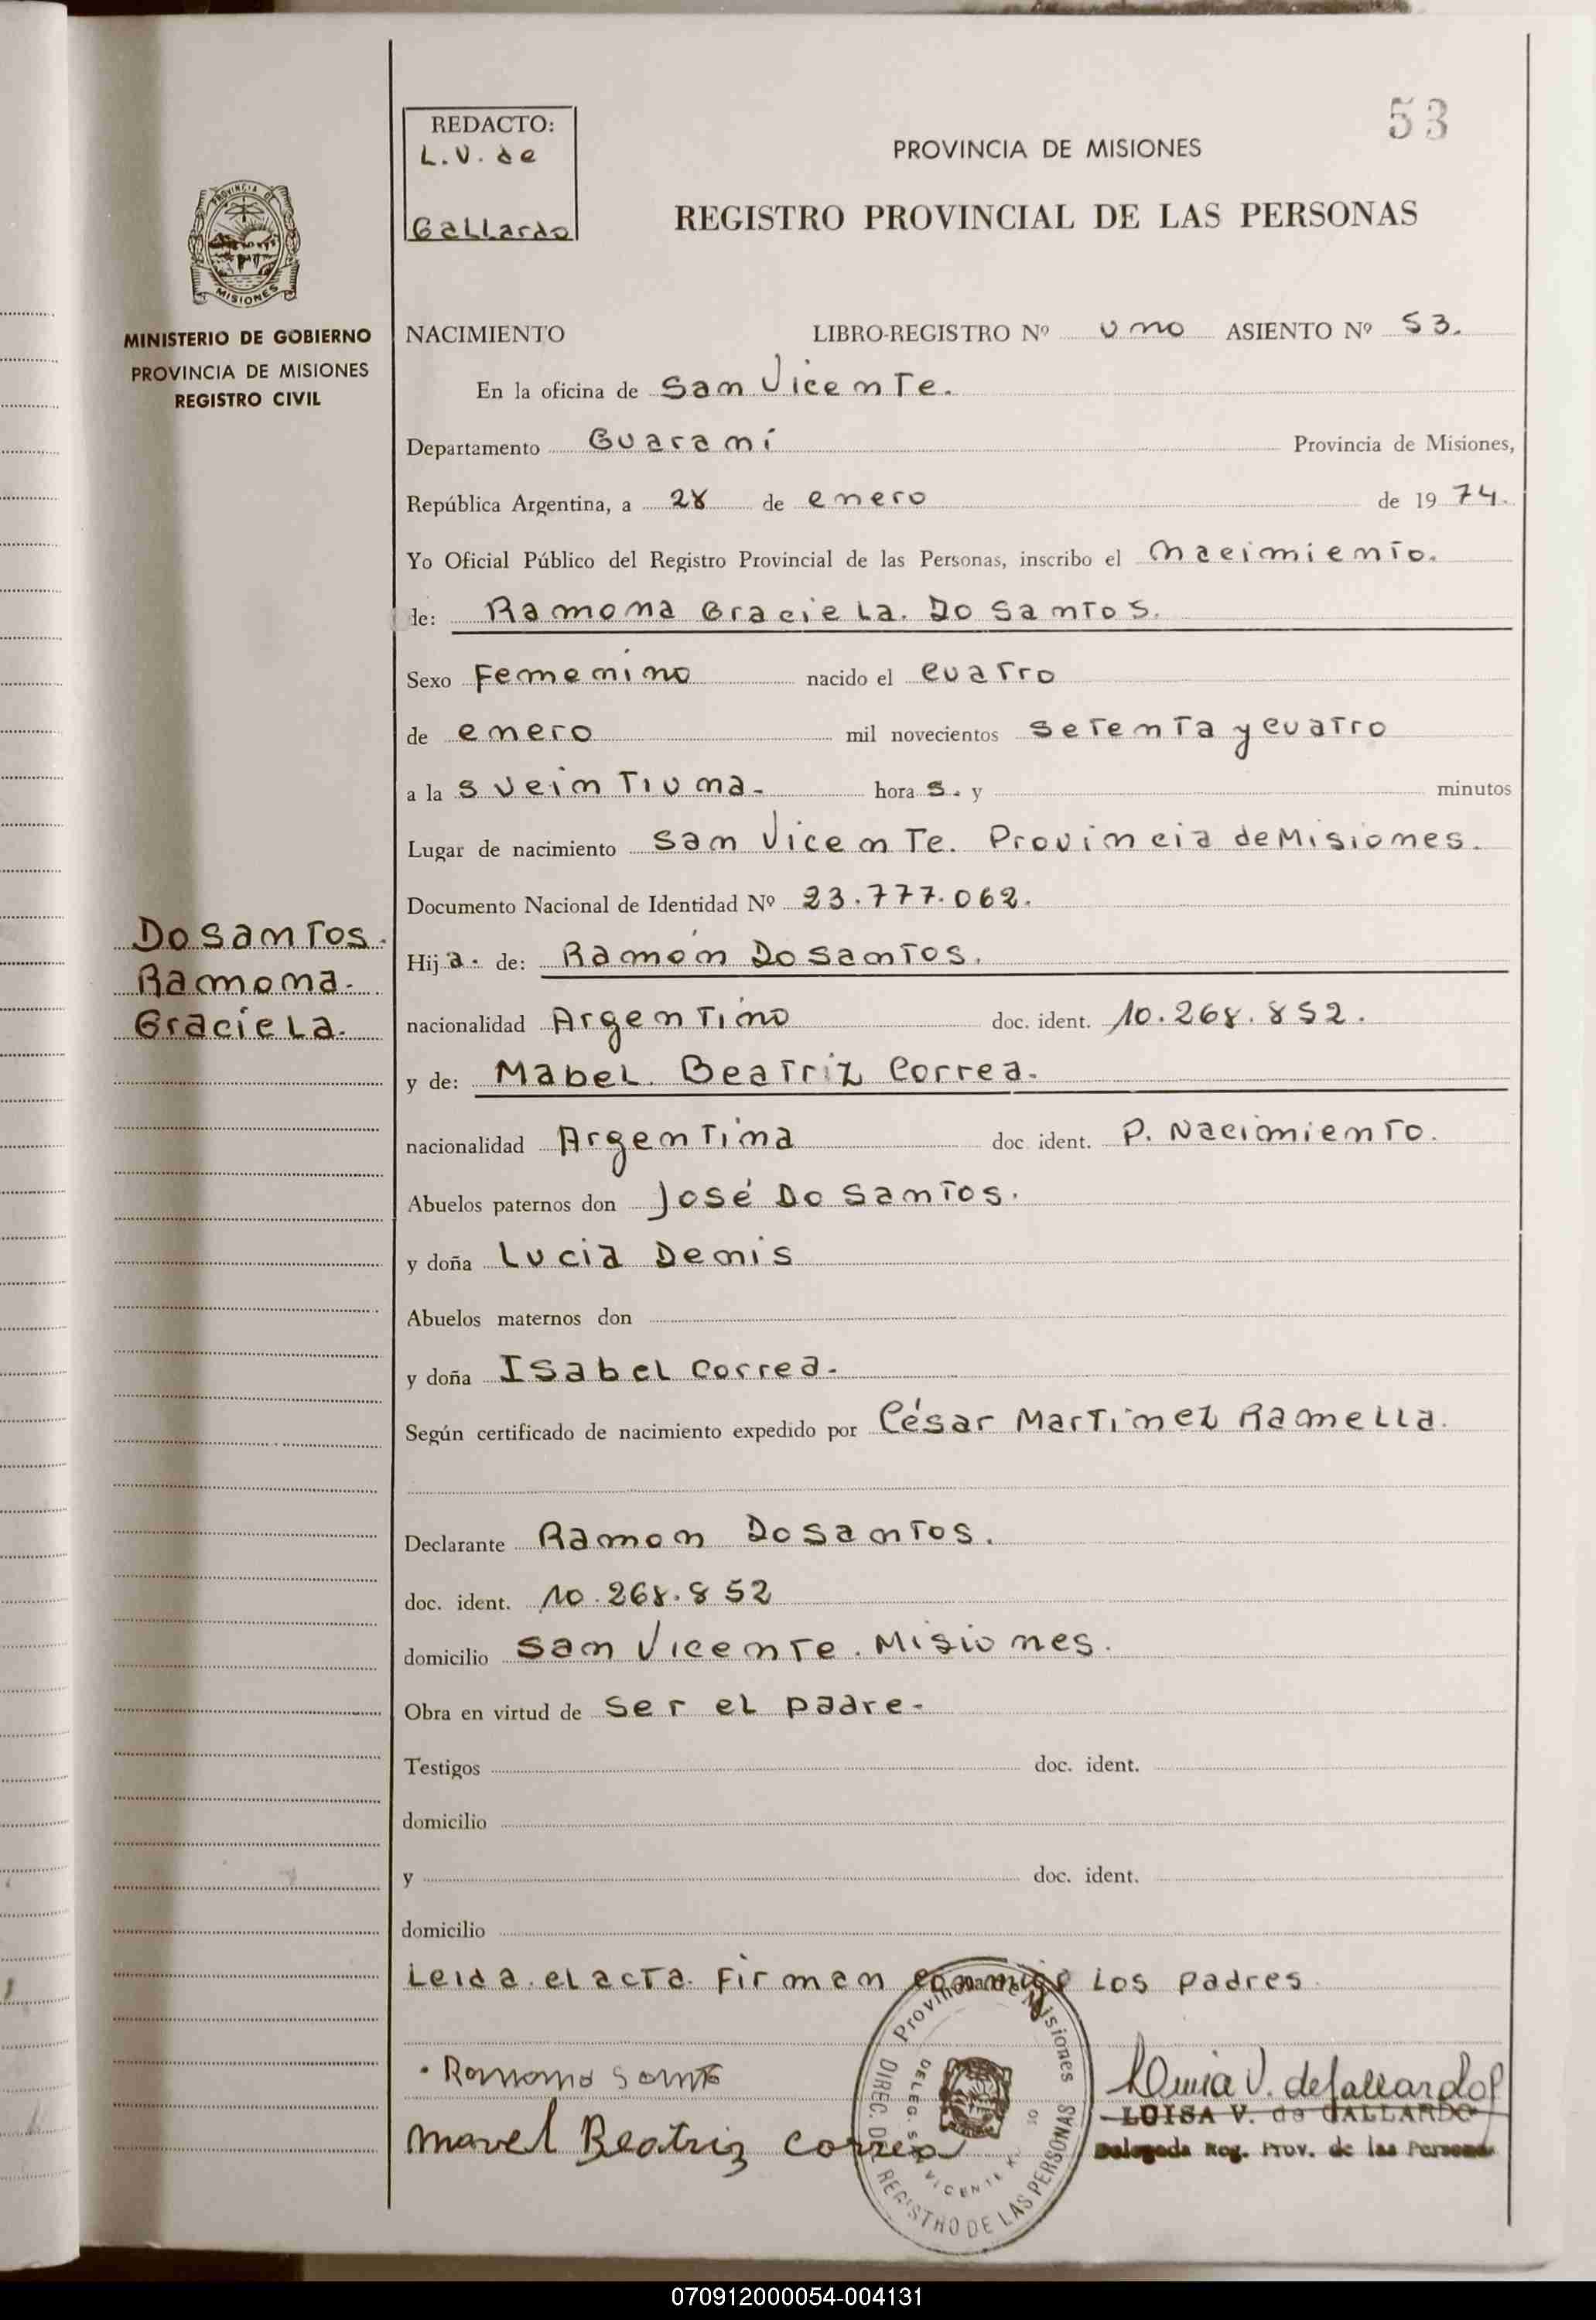 53
REDACTO:
L.V. de
Gallardo
PROVINCIA DE MISIONES
REGISTRO PROVINCIAL DE LAS PERSONAS
PROVINCIA DE
MISIONES
MINISTERIO DE GOBIERNO
PROVINCIA DE MISIONES
REGISTRO CIVIL
NACIMIENTO LIBRO-REGISTRO Nº uno ASIENTO Nº 53.
En la oficina de San Vicente.
Departamento Guaraní Provincia de Misiones,
República Argentina, a 28 de enero de 1974.
Yo Oficial Público del Registro Provincial de las Personas, inscribo el nacimiento.
de: Ramona Graciela. Do Santos.
Sexo Femenino nacido el cuatro
de enero mil novecientos setenta y cuatro
a las veintiuna. horas. y minutos
Lugar de nacimiento San Vicente. Provincia de Misiones.
Documento Nacional de Identidad Nº 23.777.062.
Do Santos.
Ramona.
Graciela.
Hija. de: Ramón Do Santos.
nacionalidad Argentino doc. ident. 10.268.852.
y de: Mabel. Beatriz Correa.
nacionalidad Argentina doc. ident. P. Nacimiento.
Abuelos paternos don José Do Santos.
y doña Lucia Denis
Abuelos maternos don
y doña Isabel Correa.
Según certificado de nacimiento expedido por César Martinez Ramella.
Declarante Ramon Do Santos.
doc. ident. 10.268.852
domicilio San Vicente. Misiones.
Obra en virtud de ser el padre.
Testigos doc. ident.
domicilio
y doc. ident.
domicilio
Leida. el acta. Firman conmigo los padres
Provincia de Misiones
DIREC. DE REGISTRO DE LAS PERSONAS
Luisa V. de Gallardo
LUISA V. de GALLARDO
Delegada Reg. Prov. de las Personas
Mavel Beatriz Correa
070912000054-004131